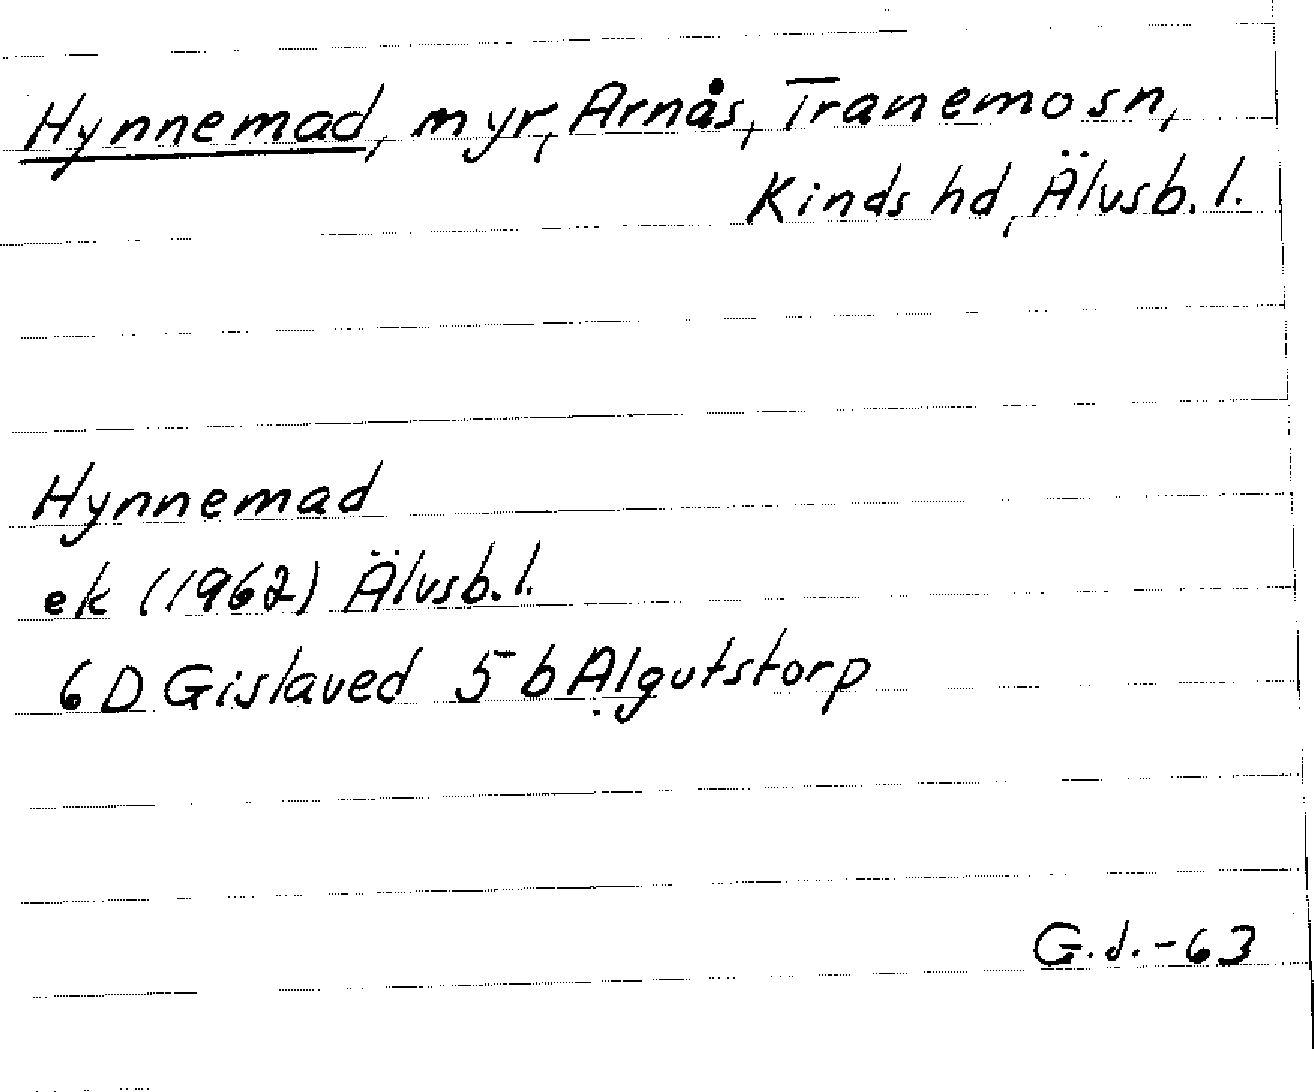 Hynnemad, myr, Arnås, Tranemo sn,
Kinds hd, Älvsb. l.
Hynnemad
ek (1962) Älvsb. l.
6 D Gislaved 5 b Algutstorp
G. J. - 63